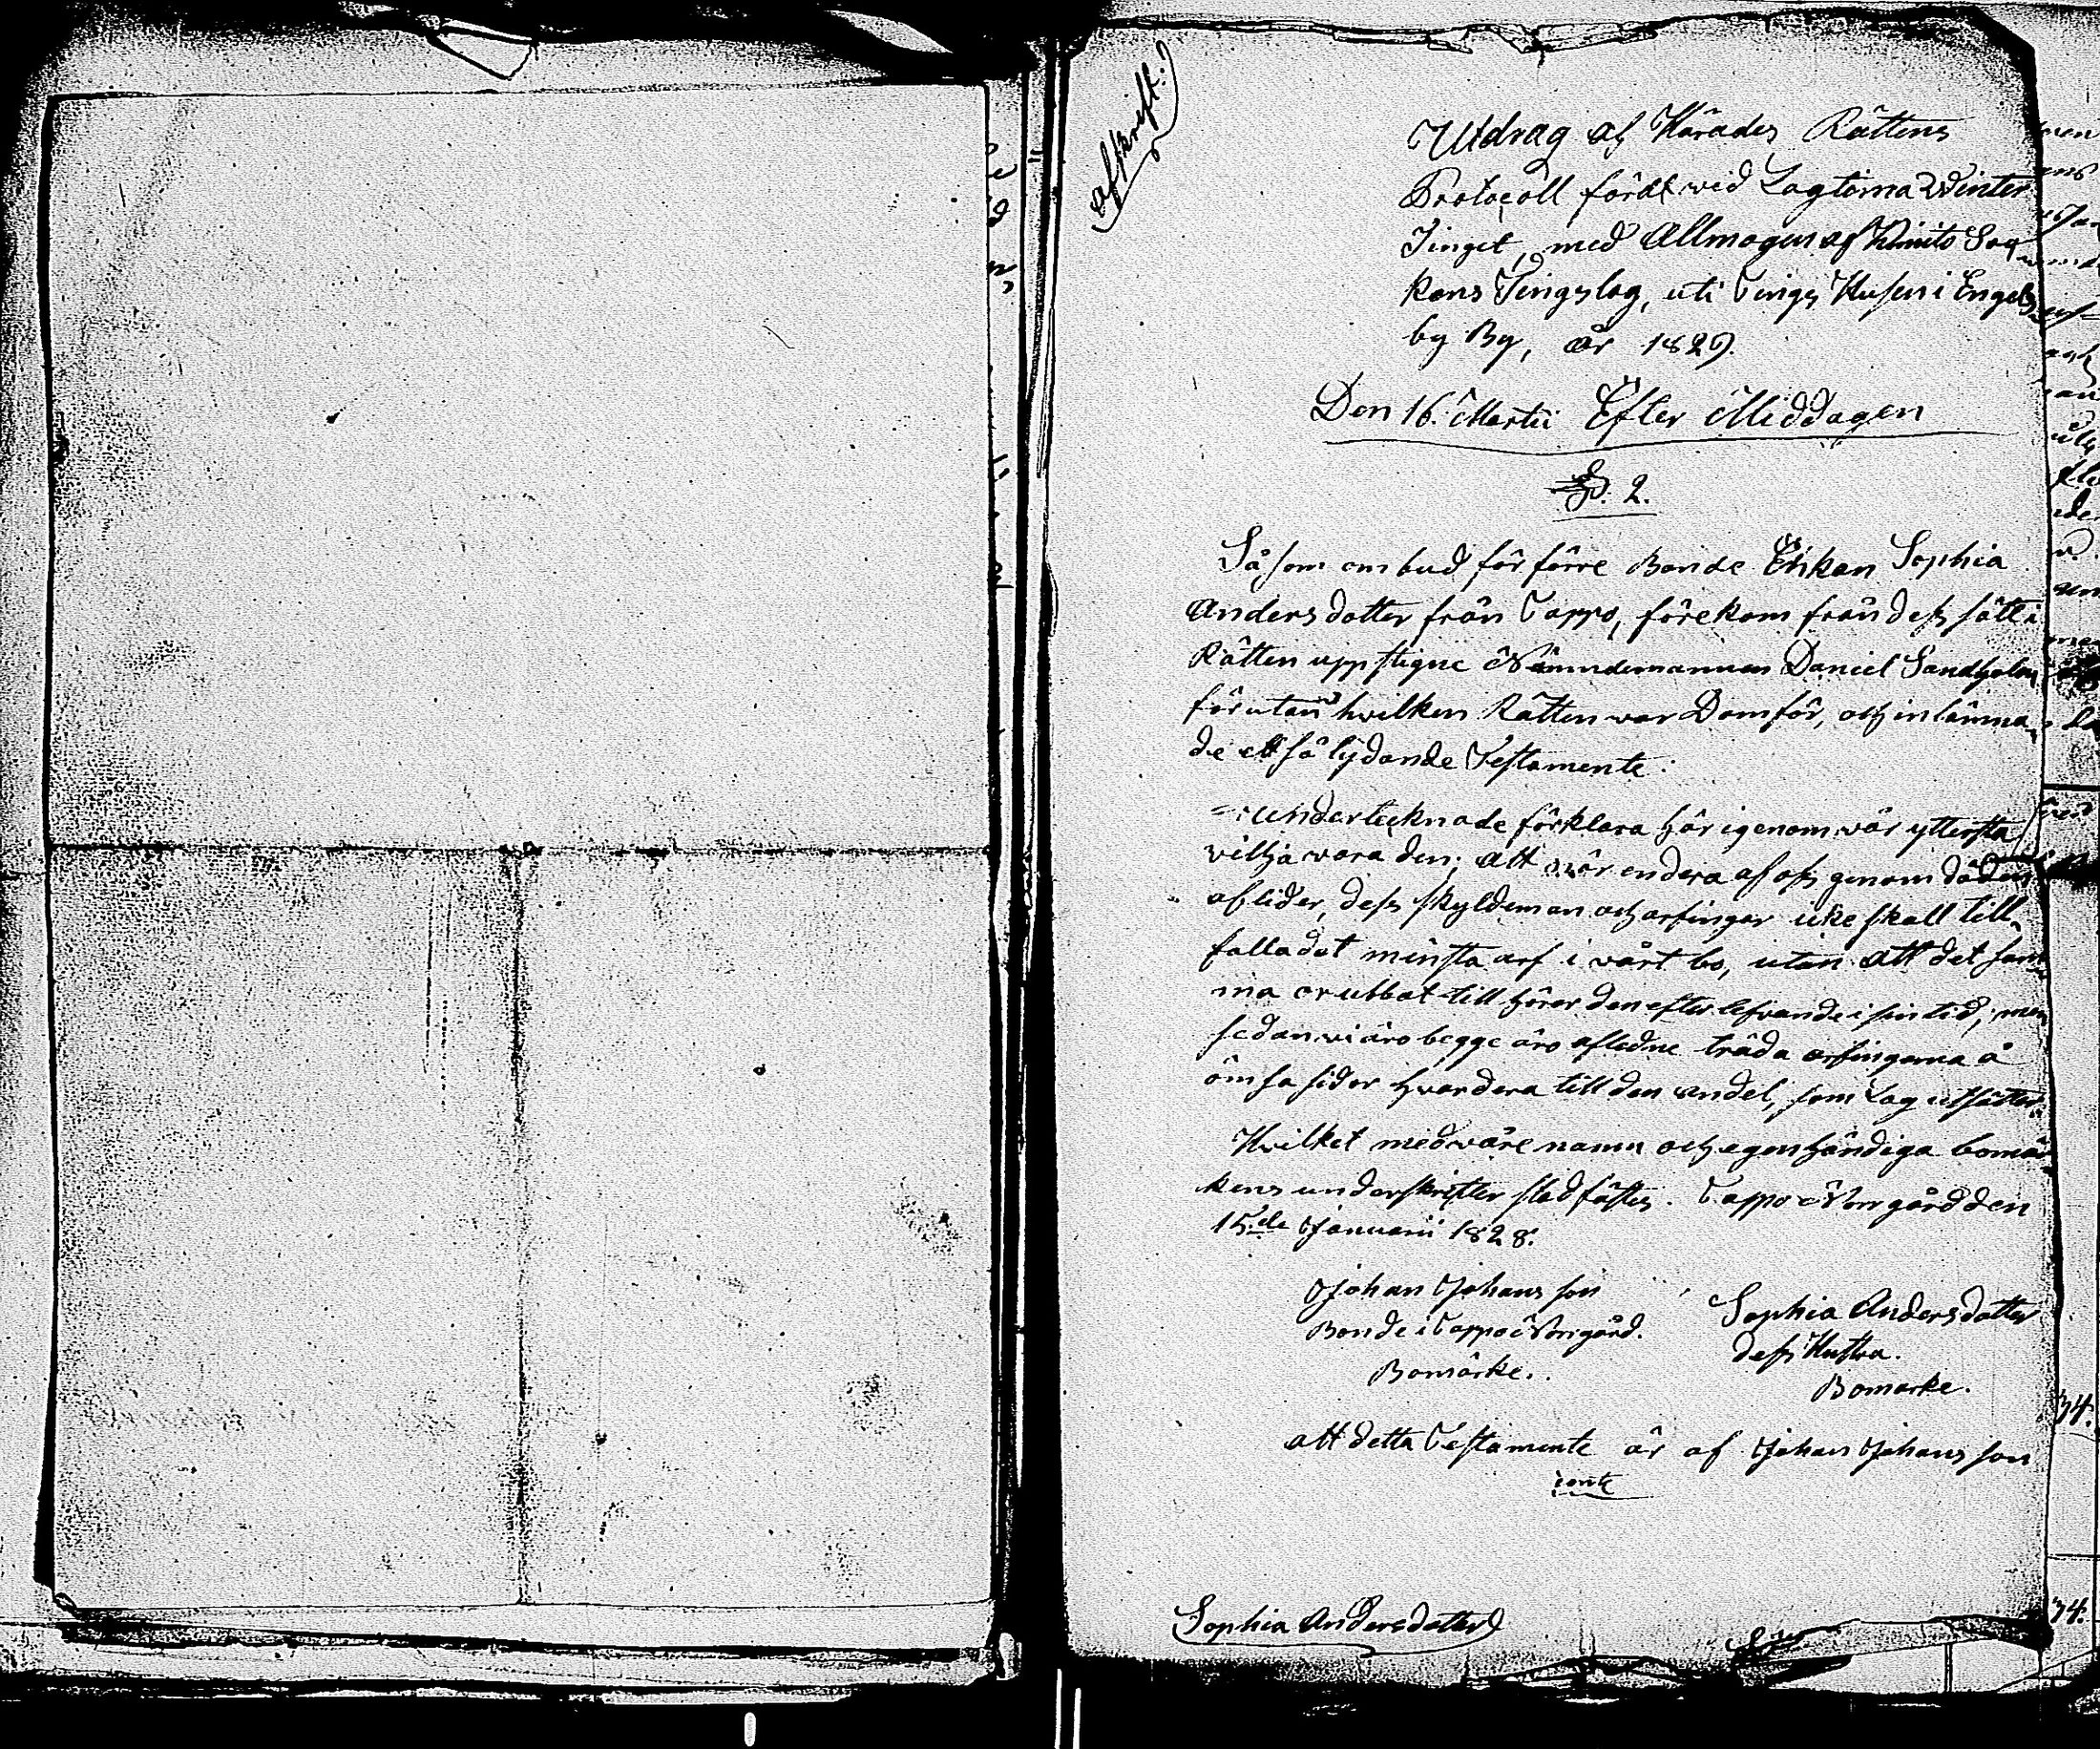 afskrift.
Utdrag af Härads Rättens
Protocoll fördt wid Lagtima Winter
Tinget, med Allmogen af Kimito Soc
kens Tingslag, uti Tings Husen i Engels
by By, år 1829.
Den 16. Martii Efter Middagen
§. 2.
Såsom ombud för förre Bonde Enkan Sophia
Anders dotter från Tappo, förekom från dess säte i
Rätten uppstigne Nämndemannen Daniel Sandholm
förutan hwilken Rätten war Domför, och inlämna
de ett så lydande Testamente:
Undertecknade förklara här igenom vår yttersta
vilja vara den; att när endera af oss genom döden
aflider, dess skyldeman och arfingar icke skall till
falla det minsta arf i vårt bo, utan att det sam
ma orubbat till hörer den efterlefvande i sin tid, men
sedan vi äro begge äro afledne träda arfingarna å
ömsa sidor hvardera till den andel, som Lag utsätter.
Hvilket med våre namn och egenhändiga bomär
kens underskrifter stadfästes. Tappo Norrgård den
15de Januarii 1828.
Johan Johans son
Bonde i Tappo Norrgård.
Bomärke.
Sophia Andersdotter
dess Hustru.
Bomärke.
att detta Testamente är af Johan Johans son
Sophia Andersdotter